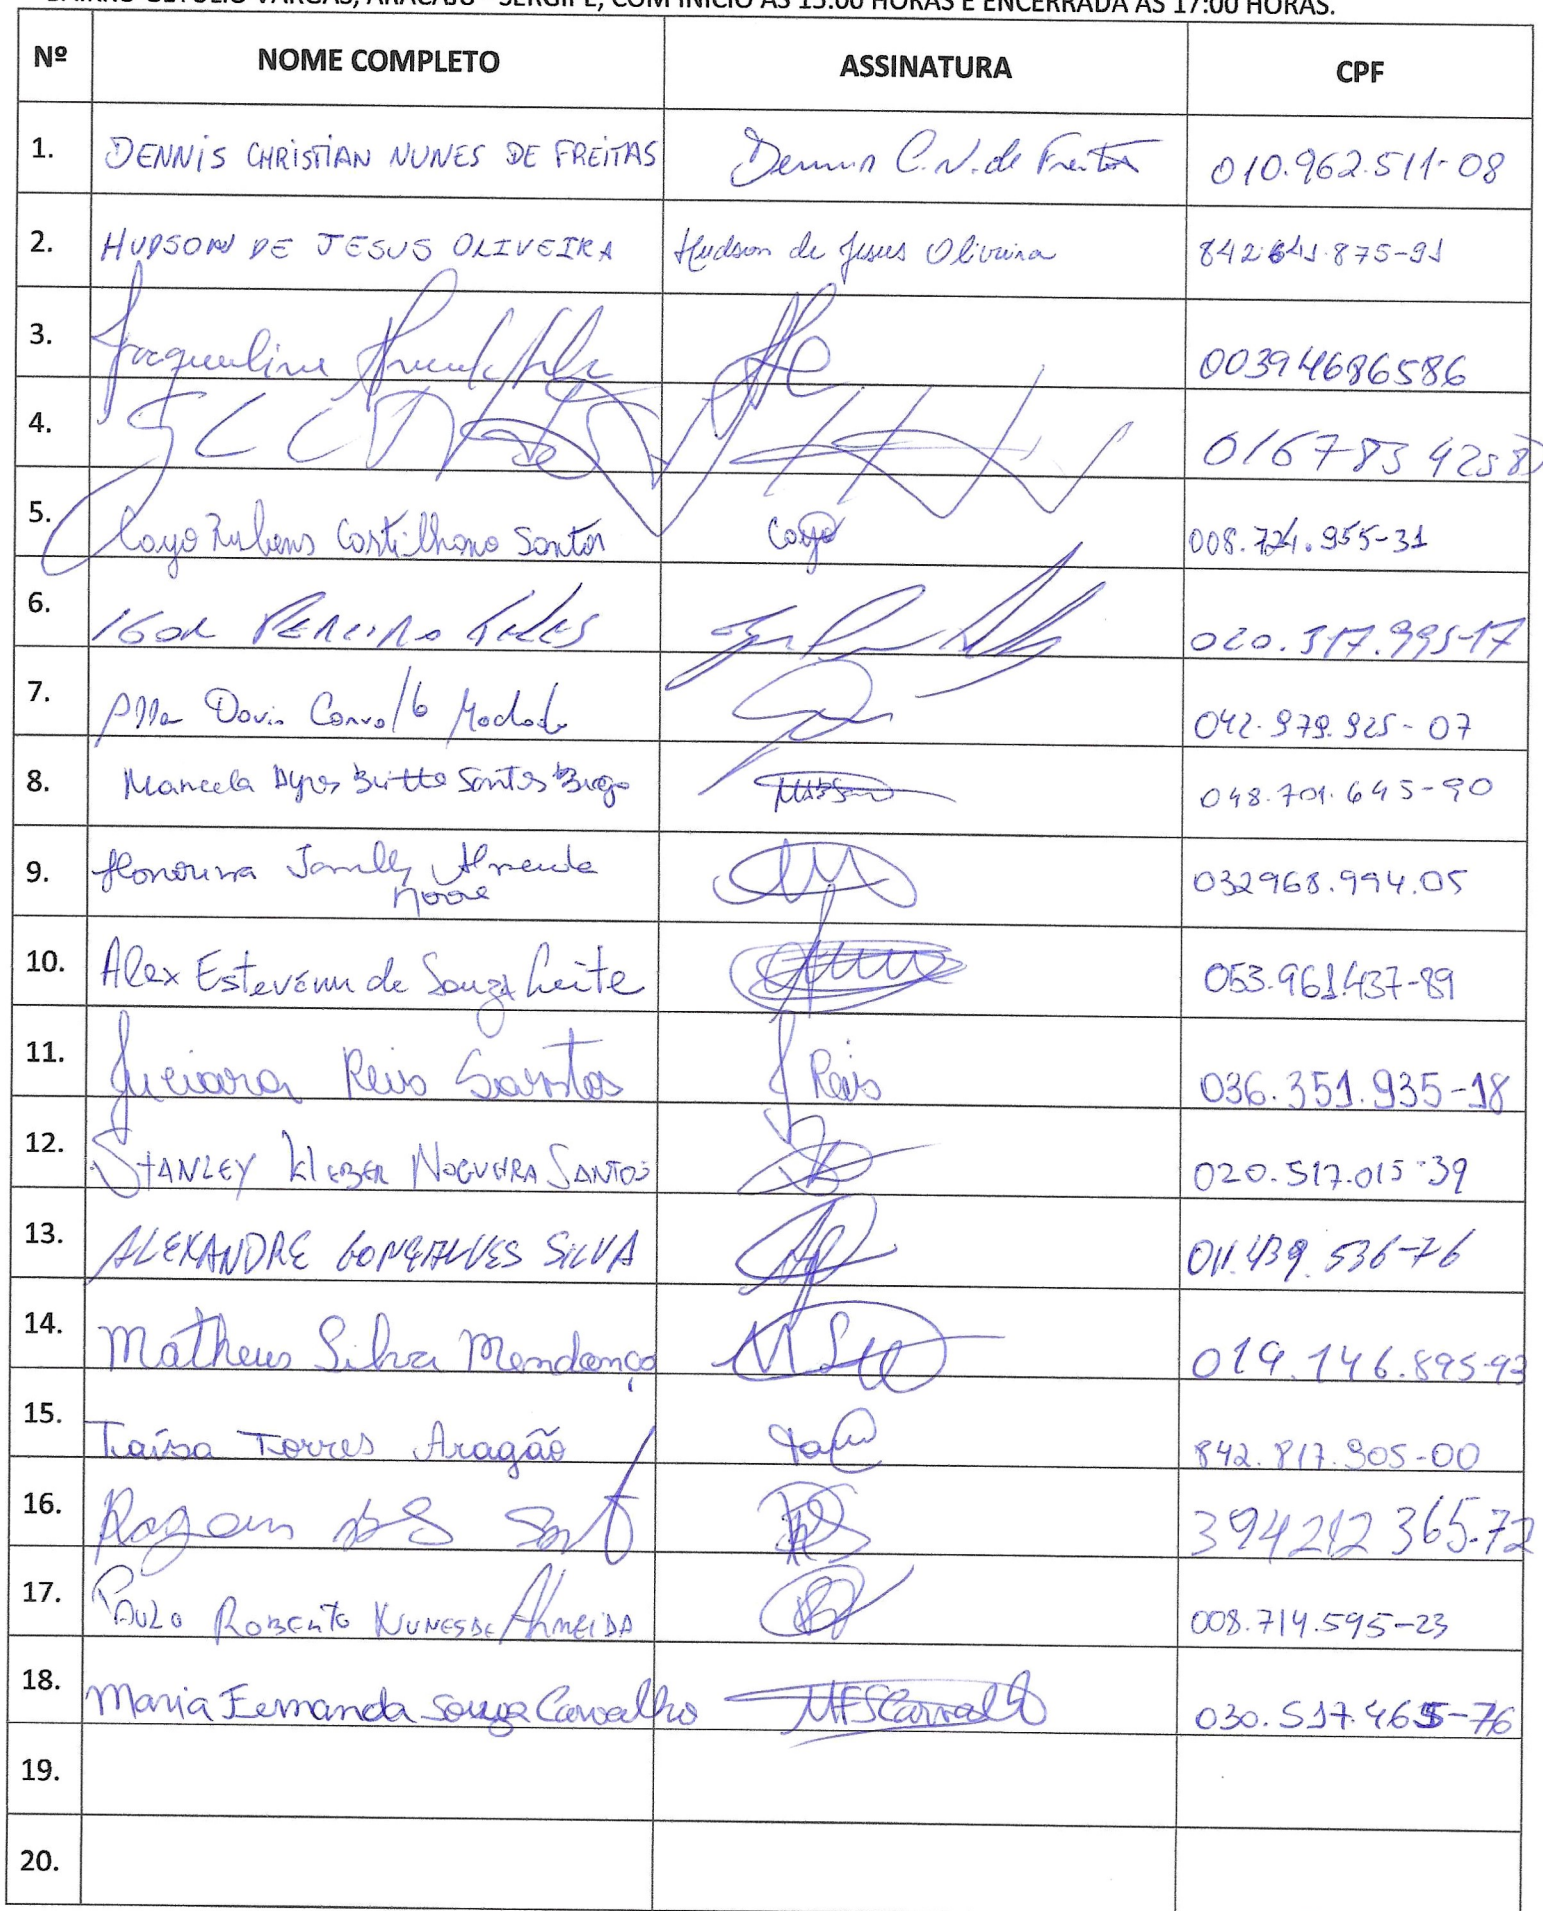 BAIRRO GETÚLIO VARGAS, ARACAJU - SERGIPE, COM INÍCIO ÀS 15:00 HORAS E ENCERRADA ÀS 17:00 HORAS.
Nº NOME COMPLETO ASSINATURA CPF
1. DENNIS CHRISTIAN NUNES DE FREITAS Dennis C. N. de Freitas 010.962.511-08
2. HUDSON DE JESUS OLIVEIRA Hudson de Jesus Oliveira 842.641.875-91
3. Jacqueline 00394686586
4. 016783425
5. Cayo Rubens Castilhano Santos Cayo 008.724.955-31
6. IGOR PEREIRA TELES 020.517.995-17
7. Davis Carvalho Machado 042.979.925-07
8. Marcela Ayres Britto Santos Brago 048.701.645-90
9. Almeida 032968.994.05
10. Alex Estevem de Souza Leite 053.961.437-89
11. Juciara Reis Santos J Reis 036.351.935-18
12. STANLEY KLEBER NOGUEIRA SANTOS 020.517.015-39
13. ALEXANDRE GONÇALVES SILVA 011.439.536-76
14. Matheus Silva Mendonça 019.146.895-93
15. Taísa Torres Aragão 842.817.905-00
16. 394212365.72
17. PAULO ROBERTO NUNES DE ALMEIDA 008.714.595-23
18. Maria Fernanda Souza Carvalho MFSCarvalho 030.517.465-76
19.
20.